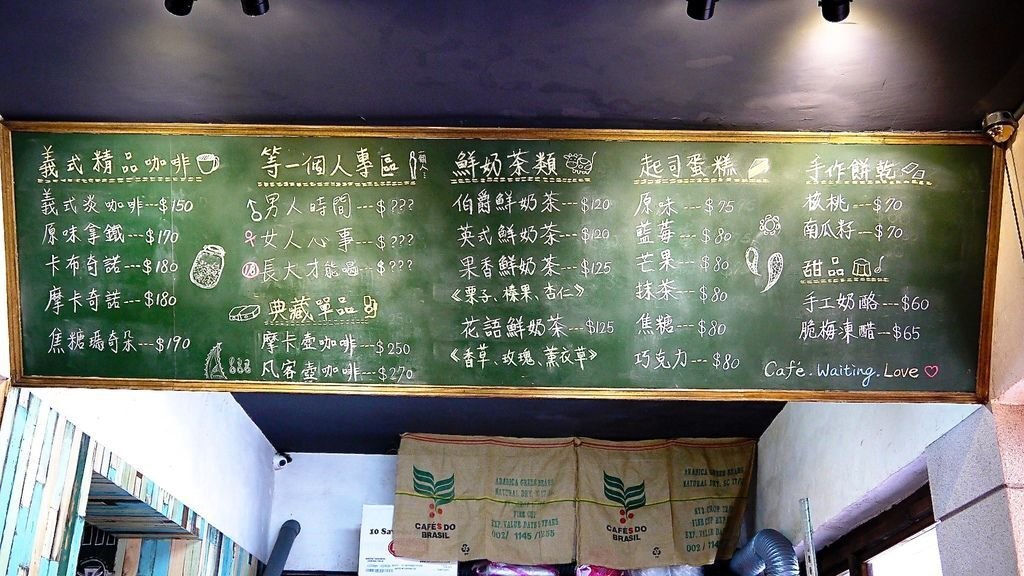 義式精品咖啡
義式淡咖啡---$150
原味拿鐵---$170
卡布奇諾---$180
摩卡奇諾---$180
焦糖瑪奇朵---$190
等一個人專區
♂男人時間---$???
♀女人心事---$???
18長大才能喝---$???
典藏單品
摩卡壺咖啡---$250
凡客壺咖啡---$270
鮮奶茶類
伯爵鮮奶茶---$120
英式鮮奶茶---$120
果香鮮奶茶---$125
《栗子、榛果、杏仁》
花語鮮奶茶---$125
《香草、玫瑰、薰衣草》
起司蛋糕
原味---$75
藍莓---$80
芒果---$80
抹茶---$80
焦糖---$80
巧克力---$80
手作餅乾
核桃---$70
南瓜籽---$70
甜品
手工奶酪---$60
脆梅凍醋---$65
Café.Waiting.Love♡
CAFÉS DO
BRASIL
ARABICA GREEN BEANS
EXP. VALUE DATE 2 YEARS
002/ 1145/1255
CAFÉS DO
BRASIL
ARABICA GREEN BEANS
002/ 1145
10 Sa